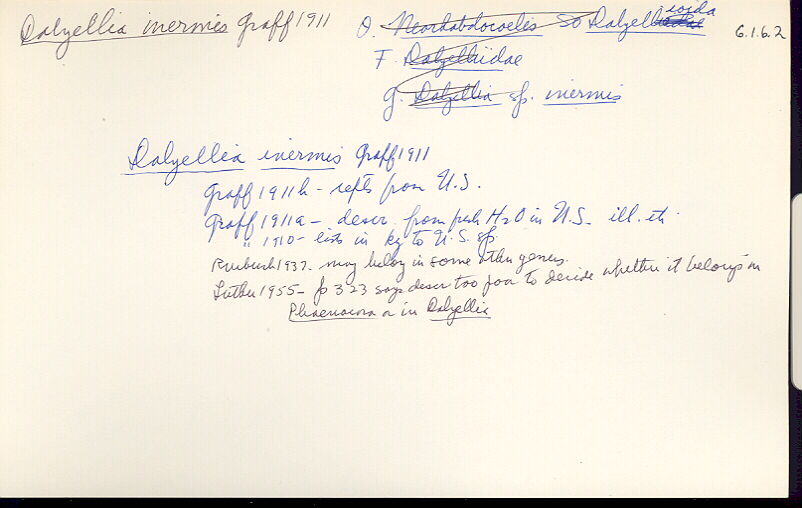 Dalyellia inermis Graff 1911
O. Neorhabdocoela SO Dalyellioida
6.1.6.2
F. Dalyelliidae
g. Dalyellia sp. inermis
Dalyellia inermis Graff 1911
Graff 1911b - repts from U.S.
Graff 1911a - descr. from fresh H2O in U.S. ill. etc.
" 1910 - lists in key to U.S. sp.
Ruebush 1937 - may belong in some other genus.
Luther 1955 - p 323 says descr too poor to decide whether it belongs in
Phaenocora or in Dalyellia